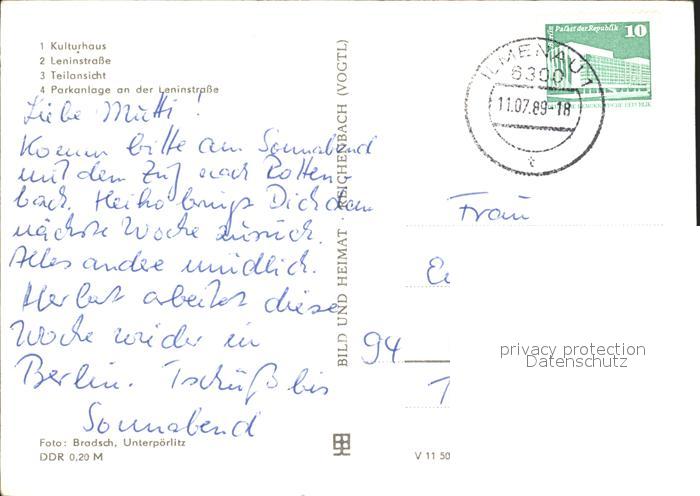 1 Kulturhaus
2 Leninstraße
3 Teilansicht
4 Parkanlage an der Leninstraße
Liebe Mutti!
Komm bitte am Sonnabend
mit dem Zug nach Rotten-
bach. Heiko bringt Dich dann
nächste Woche zurück.
Alles andre mündlich.
Herbert arbeitet diese
Woche wieder in
Berlin. Tschüß bis
Sonnabend
Foto: Bradsch, Unterpörlitz
DDR 0,20 M
BILD UND HEIMAT · REICHENBACH (VOGTL)
V 11 50
Palast der Republik 10
ILMENAU 1
6300
11.07.89-18
t
Frau
94
privacy protection
Datenschutz